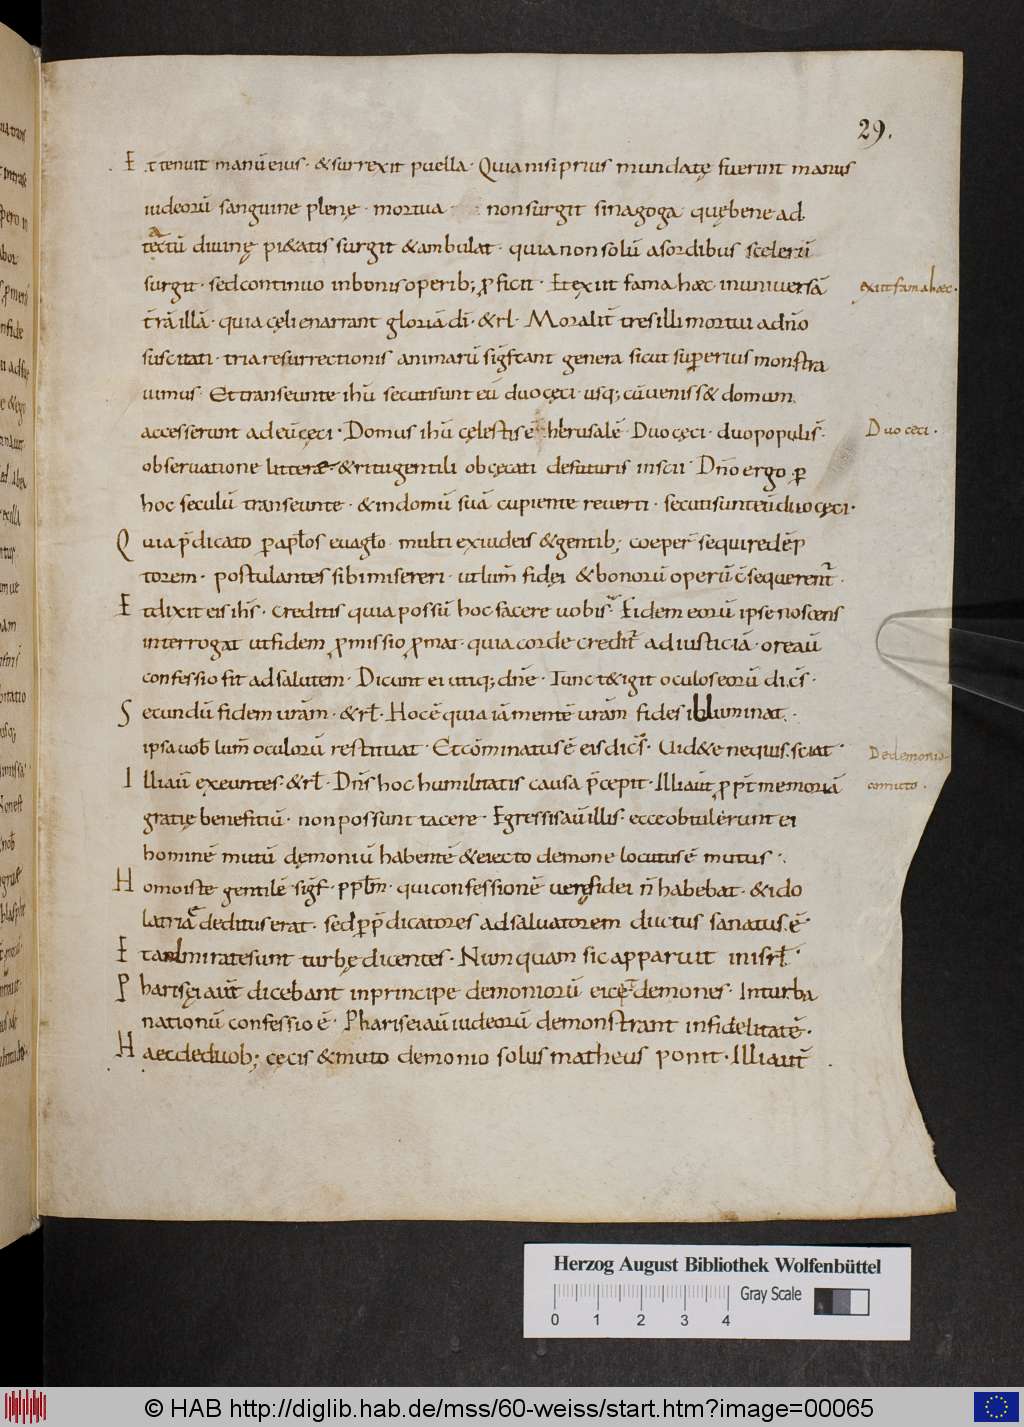 29.
Et tenuit manū eius · & surrexit puella · Quia nisi prius mundatę fuerint manus
iudeorū sanguine plenę · mortua non surgit sinagoga quę bene ad
tactū divinę pi&atis surgit & ambulat · quia non solū a sordibus scelerū
surgit · sed continuo in bonis operib; ꝓficit · Et exiit fama hæc in universā
t̄rā illā · quia cęli enarrant gloriā dī · & rł · Moralit̄ tres illi mortui a dn̄o
suscitati · tria resurrectionis animarū sigf̄cant genera sicut superius monstra
vimus · Et transeunte ihū secuti sunt eū duo cęci · usq; cū veniss& domum
accesserunt ad eū cęci · Domus ihū cęlestis ē hierusalē · Duo cęci · duo populi s̄ ·
observatione litteræ & ritu gentili obcęcati de futuris inscii · Dn̄o ergo ꝑ
hoc seculū transeunte · & in domū suā cupiente reverti · secuti sunt eū duo cęci ·
Quia p̄dicato ꝑ apłos euagło multi ex iudeis & gentib; coeper̄ sequi redēp
torem · postulantes sibi misereri · ut lum̄ fidęi & bonorū operū c̄sequerent̄ ·
Et dixit eis ihs̄ · Creditis quia possū hoc facere vobis · Fidem eorū ipse noscens
interrogat ut fidem ꝓmissio ꝓmat · quia corde credit̄ ad iusticiā · ore aū
confessio fit ad salutem · Dicunt ei utiq; dn̄e · Tunc t&igit oculos eorū dic̄s ·
Secundū fidem vrām · & rł · Hoc ē quia iā mentē vrām fides illuminat ·
ipsa vob̄ lum̄ oculorū restituat · Et cōminatus ē eis dic̄s · Vid&e ne quis sciat ·
Illi aū exeuntes · & rł · Dn̄s hoc humilitatis causa p̄cepit · Illi aut̄ ꝓpt̄ memoriā
gratię benefitiū · non possunt tacere · Egressis aū illis · ecce obtulerunt ei
hominē mutū dęmoniū habentē & eiecto demone locutus ē mutus ·
Homo iste gentilē sigf̄ · ppłm̄ · qui confessionē verę fidei n̄ habebat · & ido
latriæ deditus erat · sed ꝑ p̄dicatores ad salvatorem ductus sanatus ē
Et admirate sunt turbę dicentes · Numquam sic apparuit in isrł ·
Pharisęi aut̄ dicebant in principe demoniorū eicę demones · In turba
nationū confessio ē · Pharisei aū iudeorū demonstrant infidelitatē ·
Haec de duob; cęcis & muto demonio solus matheus ponit · Illi aut̄
exiit fama hæc ·
Duo cęci ·
De demonio
co muto ·
Herzog August Bibliothek Wolfenbüttel
Gray Scale
0 1 2 3 4
© HAB http://diglib.hab.de/mss/60-weiss/start.htm?image=00065